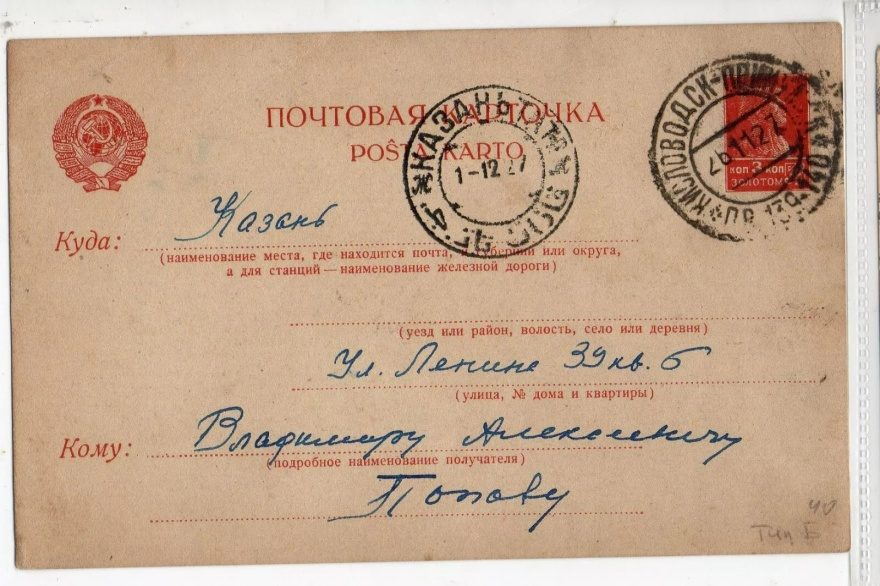 ПОЧТОВАЯ КАРТОЧКА
POŜTA KARTO
КАЗАНЬ
1-12 27
КИСЛОВОДСК
26 11 27
КОП 3 КОП
ЗОЛОТОМ
Куда: Казань
(наименование места, где находится почта, и губернии или округа,
а для станций — наименование железной дороги)
(уезд или район, волость, село или деревня)
Ул. Ленина 39 кв. 6
(улица, № дома и квартиры)
Кому: Владимиру Алексеевичу
(подробное наименование получателя)
Попову
40
тип Б